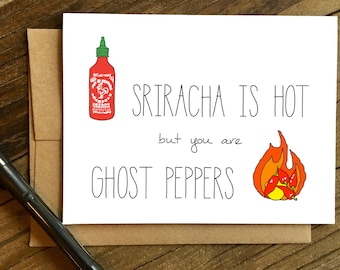 SRIRACHA IS HOT
but you are
GHOST PEPPERS